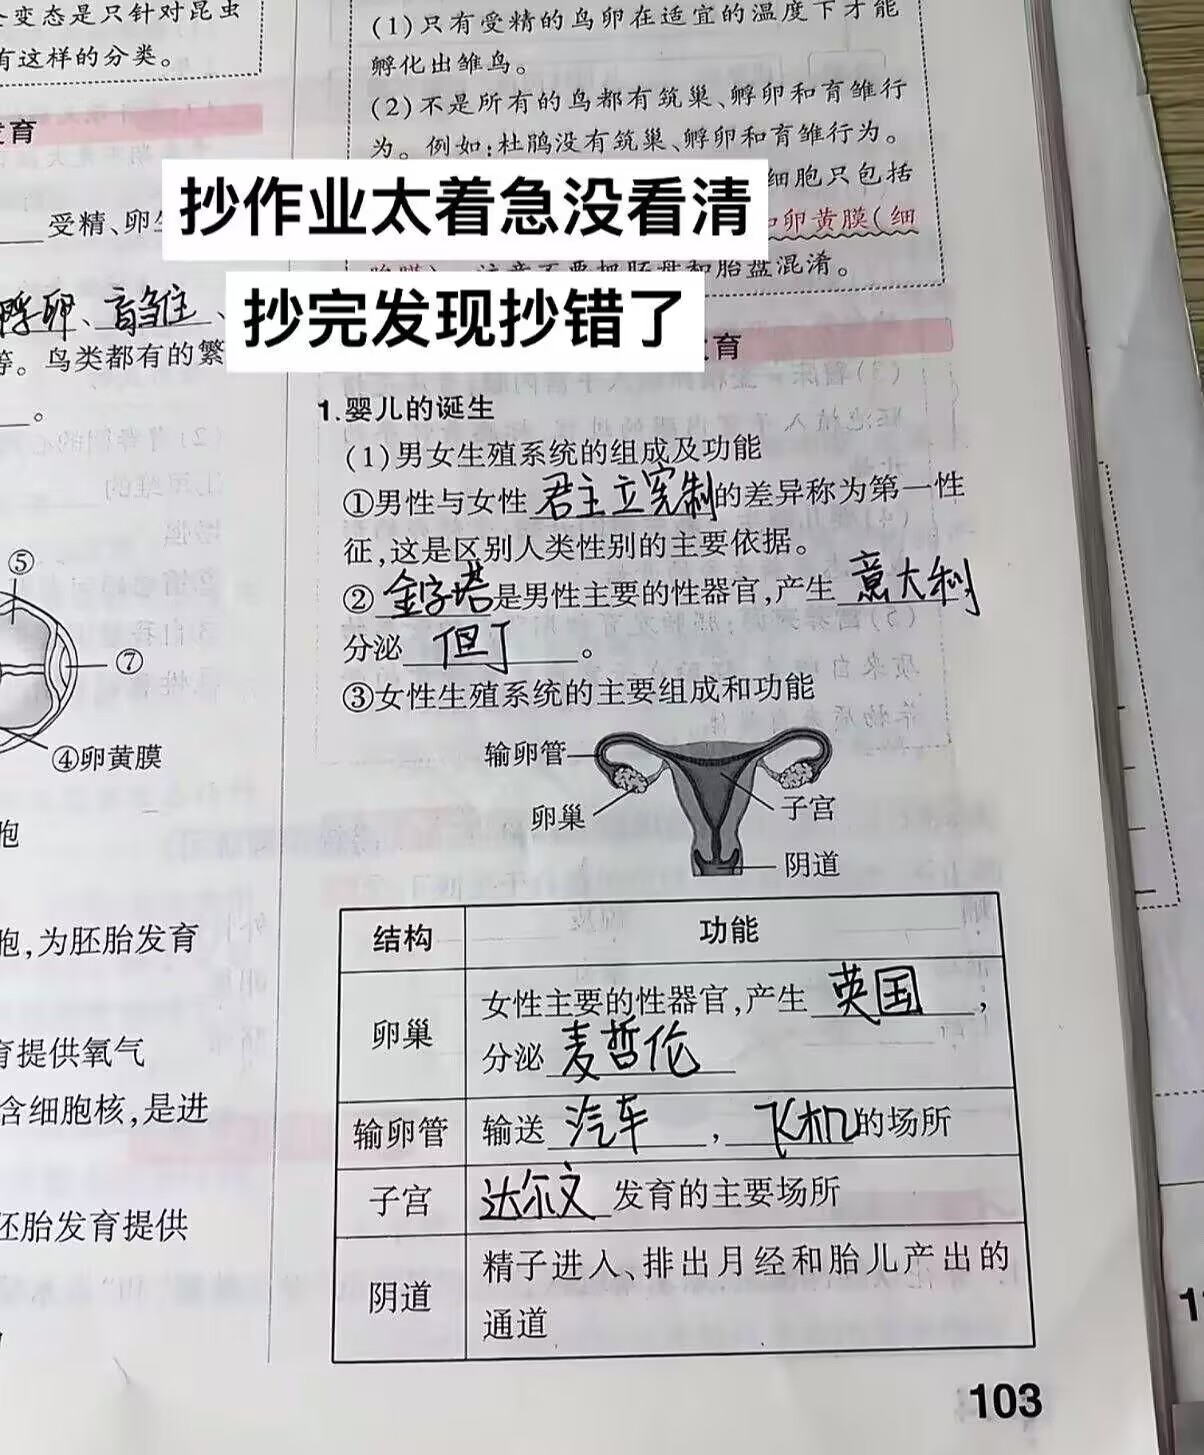 变态是只针对昆虫
有这样的分类。
育
受精、卵
孵卵、育雏、
等。鸟类都有的繁
。
⑤
⑦
④卵黄膜
胞
胞,为胚胎发育
育提供氧气
含细胞核,是进
胚胎发育提供
(1)只有受精的鸟卵在适宜的温度下才能
孵化出雏鸟。
(2)不是所有的鸟都有筑巢、孵卵和育雏行
为。例如:杜鹃没有筑巢、孵卵和育雏行为。
细胞只包括
卵黄膜(细
胞膜)。注意不要把胚盘和胎盘混淆。
抄作业太着急没看清
抄完发现抄错了
育
1.婴儿的诞生
(1)男女生殖系统的组成及功能
①男性与女性君主立宪制的差异称为第一性
征,这是区别人类性别的主要依据。
②金字塔是男性主要的性器官,产生意大利
分泌但丁。
③女性生殖系统的主要组成和功能
输卵管
卵巢
子宫
阴道
结构 功能
卵巢 女性主要的性器官,产生英国,
分泌麦哲伦
输卵管 输送汽车,飞机的场所
子宫 达尔文发育的主要场所
阴道 精子进入、排出月经和胎儿产出的
通道
103